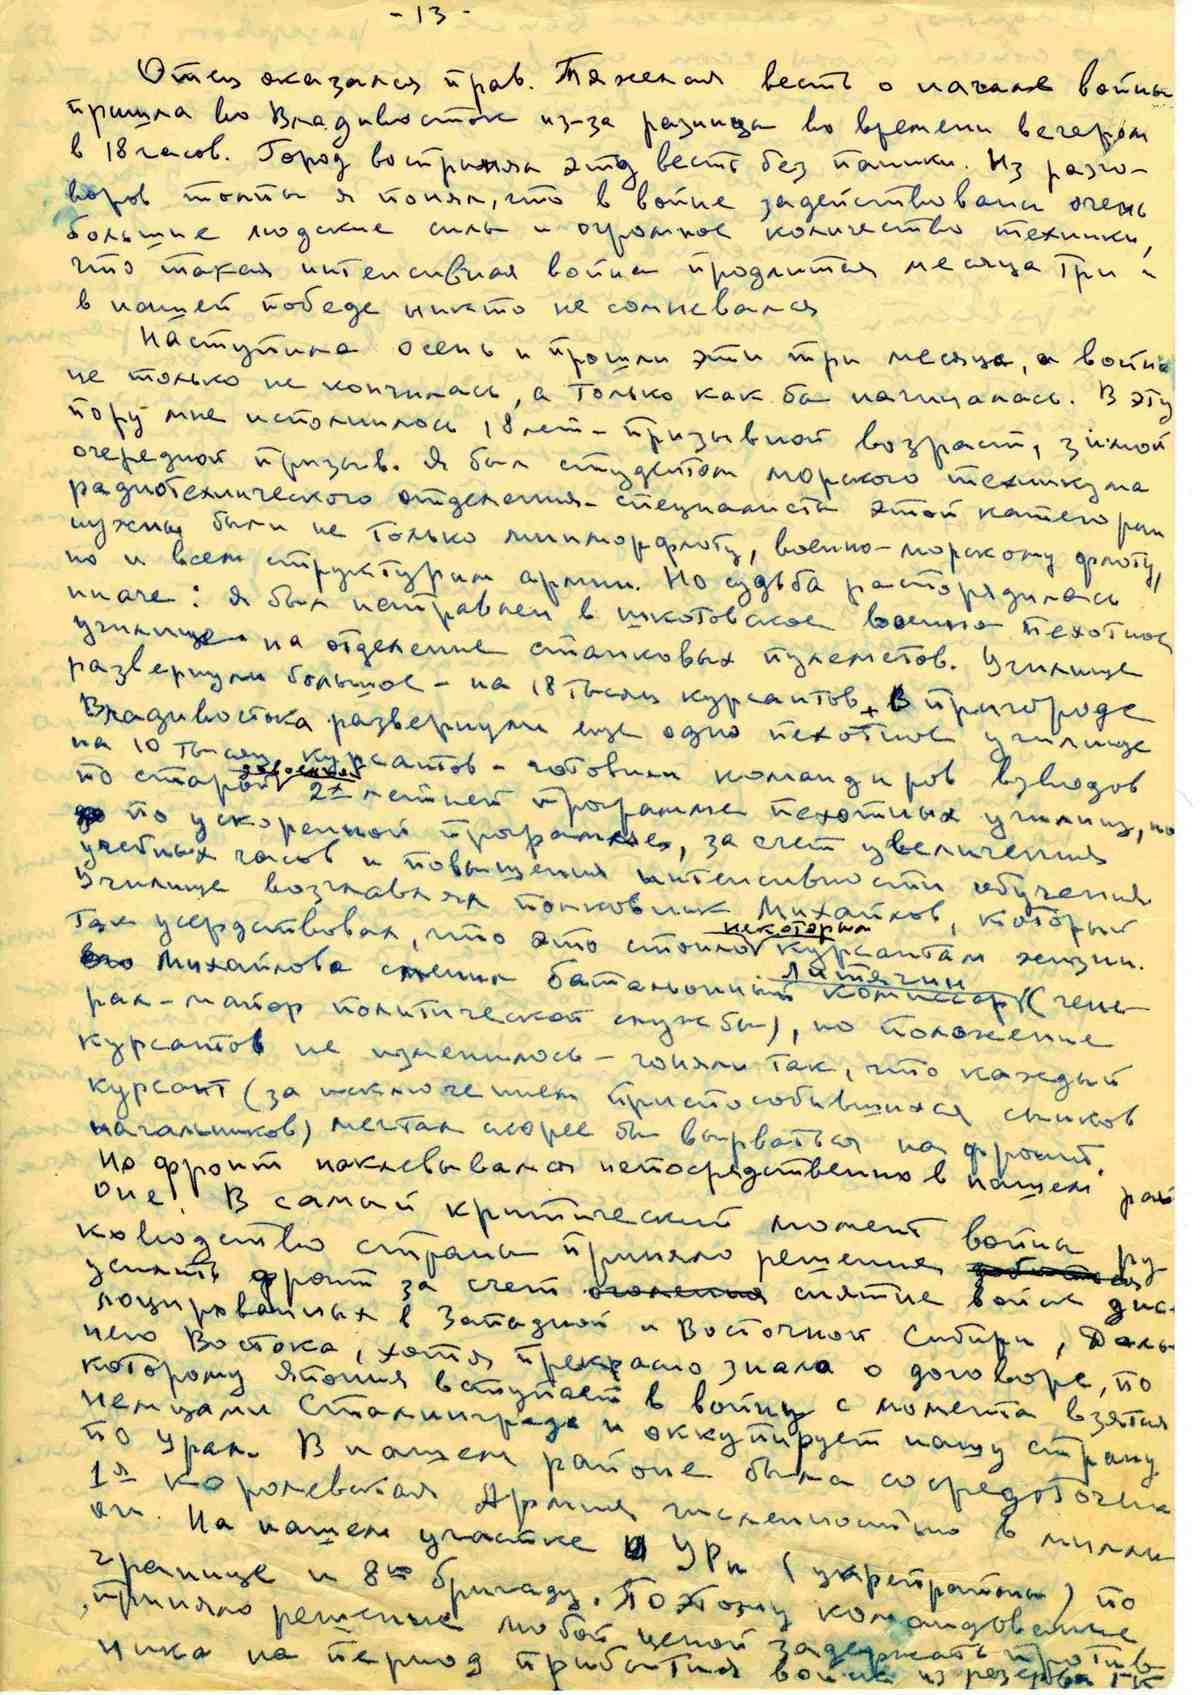 - 13 -
Отец оказался прав. Тяжелая весть о начале войны
пришла во Владивосток из-за разницы во времени вечером
в 18 часов. Город воспринял эту весть без паники. Из разго-
воров толпы я понял, что в войне задействованы очень
большие людские силы и огромное количество техники,
что такая интенсивная война продлится месяца три и
в нашей победе никто не сомневался
Наступила осень и прошли эти три месяца, а война
не только не кончилась, а только как бы начиналась. В эту
пору мне исполнилось 18 лет - призывной возраст, зимой
очередной призыв. Я был студентом морского техникума
радиотехнического отделения - специалисты этой категории
нужны были не только минморфлоту, военно-морскому флоту,
но и всем структурам армии. Но судьба распорядилась
иначе: я был направлен в шкотовское военно пехотное
училище на отделение станковых пулеметов. Училище
развернули большое - на 18 тысяч курсантов. В пригороде
Владивостока развернули еще одно пехотное училище
на 10 тысяч курсантов - готовили командиров взводов
по старой довоенной 2х летней программе пехотных училищ, но
по ускоренной программе, за счет увеличения
учебных часов и повышения интенсивности обучения
Училище возглавлял полковник Михайлов, который
так усердствовал, что это стоило некоторым курсантам жизни.
Михайлова сменил батальонный комиссар Литягин (гене-
рал-майор политической службы), но положение
курсантов не изменилось - гоняли так, что каждый
курсант (за исключением приспособившихся сынков
начальников) мечтал скорее бы вырваться на фронт.
Но фронт наклевывался непосредственно в нашем рай-
оне! В самый критический момент войны ру
ководство страны приняло решение
усилить фронт за счет снятие войск дис-
лоцированных в Западной и Восточной Сибири, Даль-
него Востока, хотя прекрасно знала о договоре, по
которому Япония вступает в войну с момента взятия
немцами Сталинграда и оккупирует нашу страну
по Урал. В нашем районе была сосредоточена
1я Королевская Армия численностью в милли
он. На нашем участке УРы (укрепрайоны) по
границе и 8ю бригаду. Поэтому командование
приняло решение любой ценой задержать против-
ника на период прибытия войск из резерва ГК